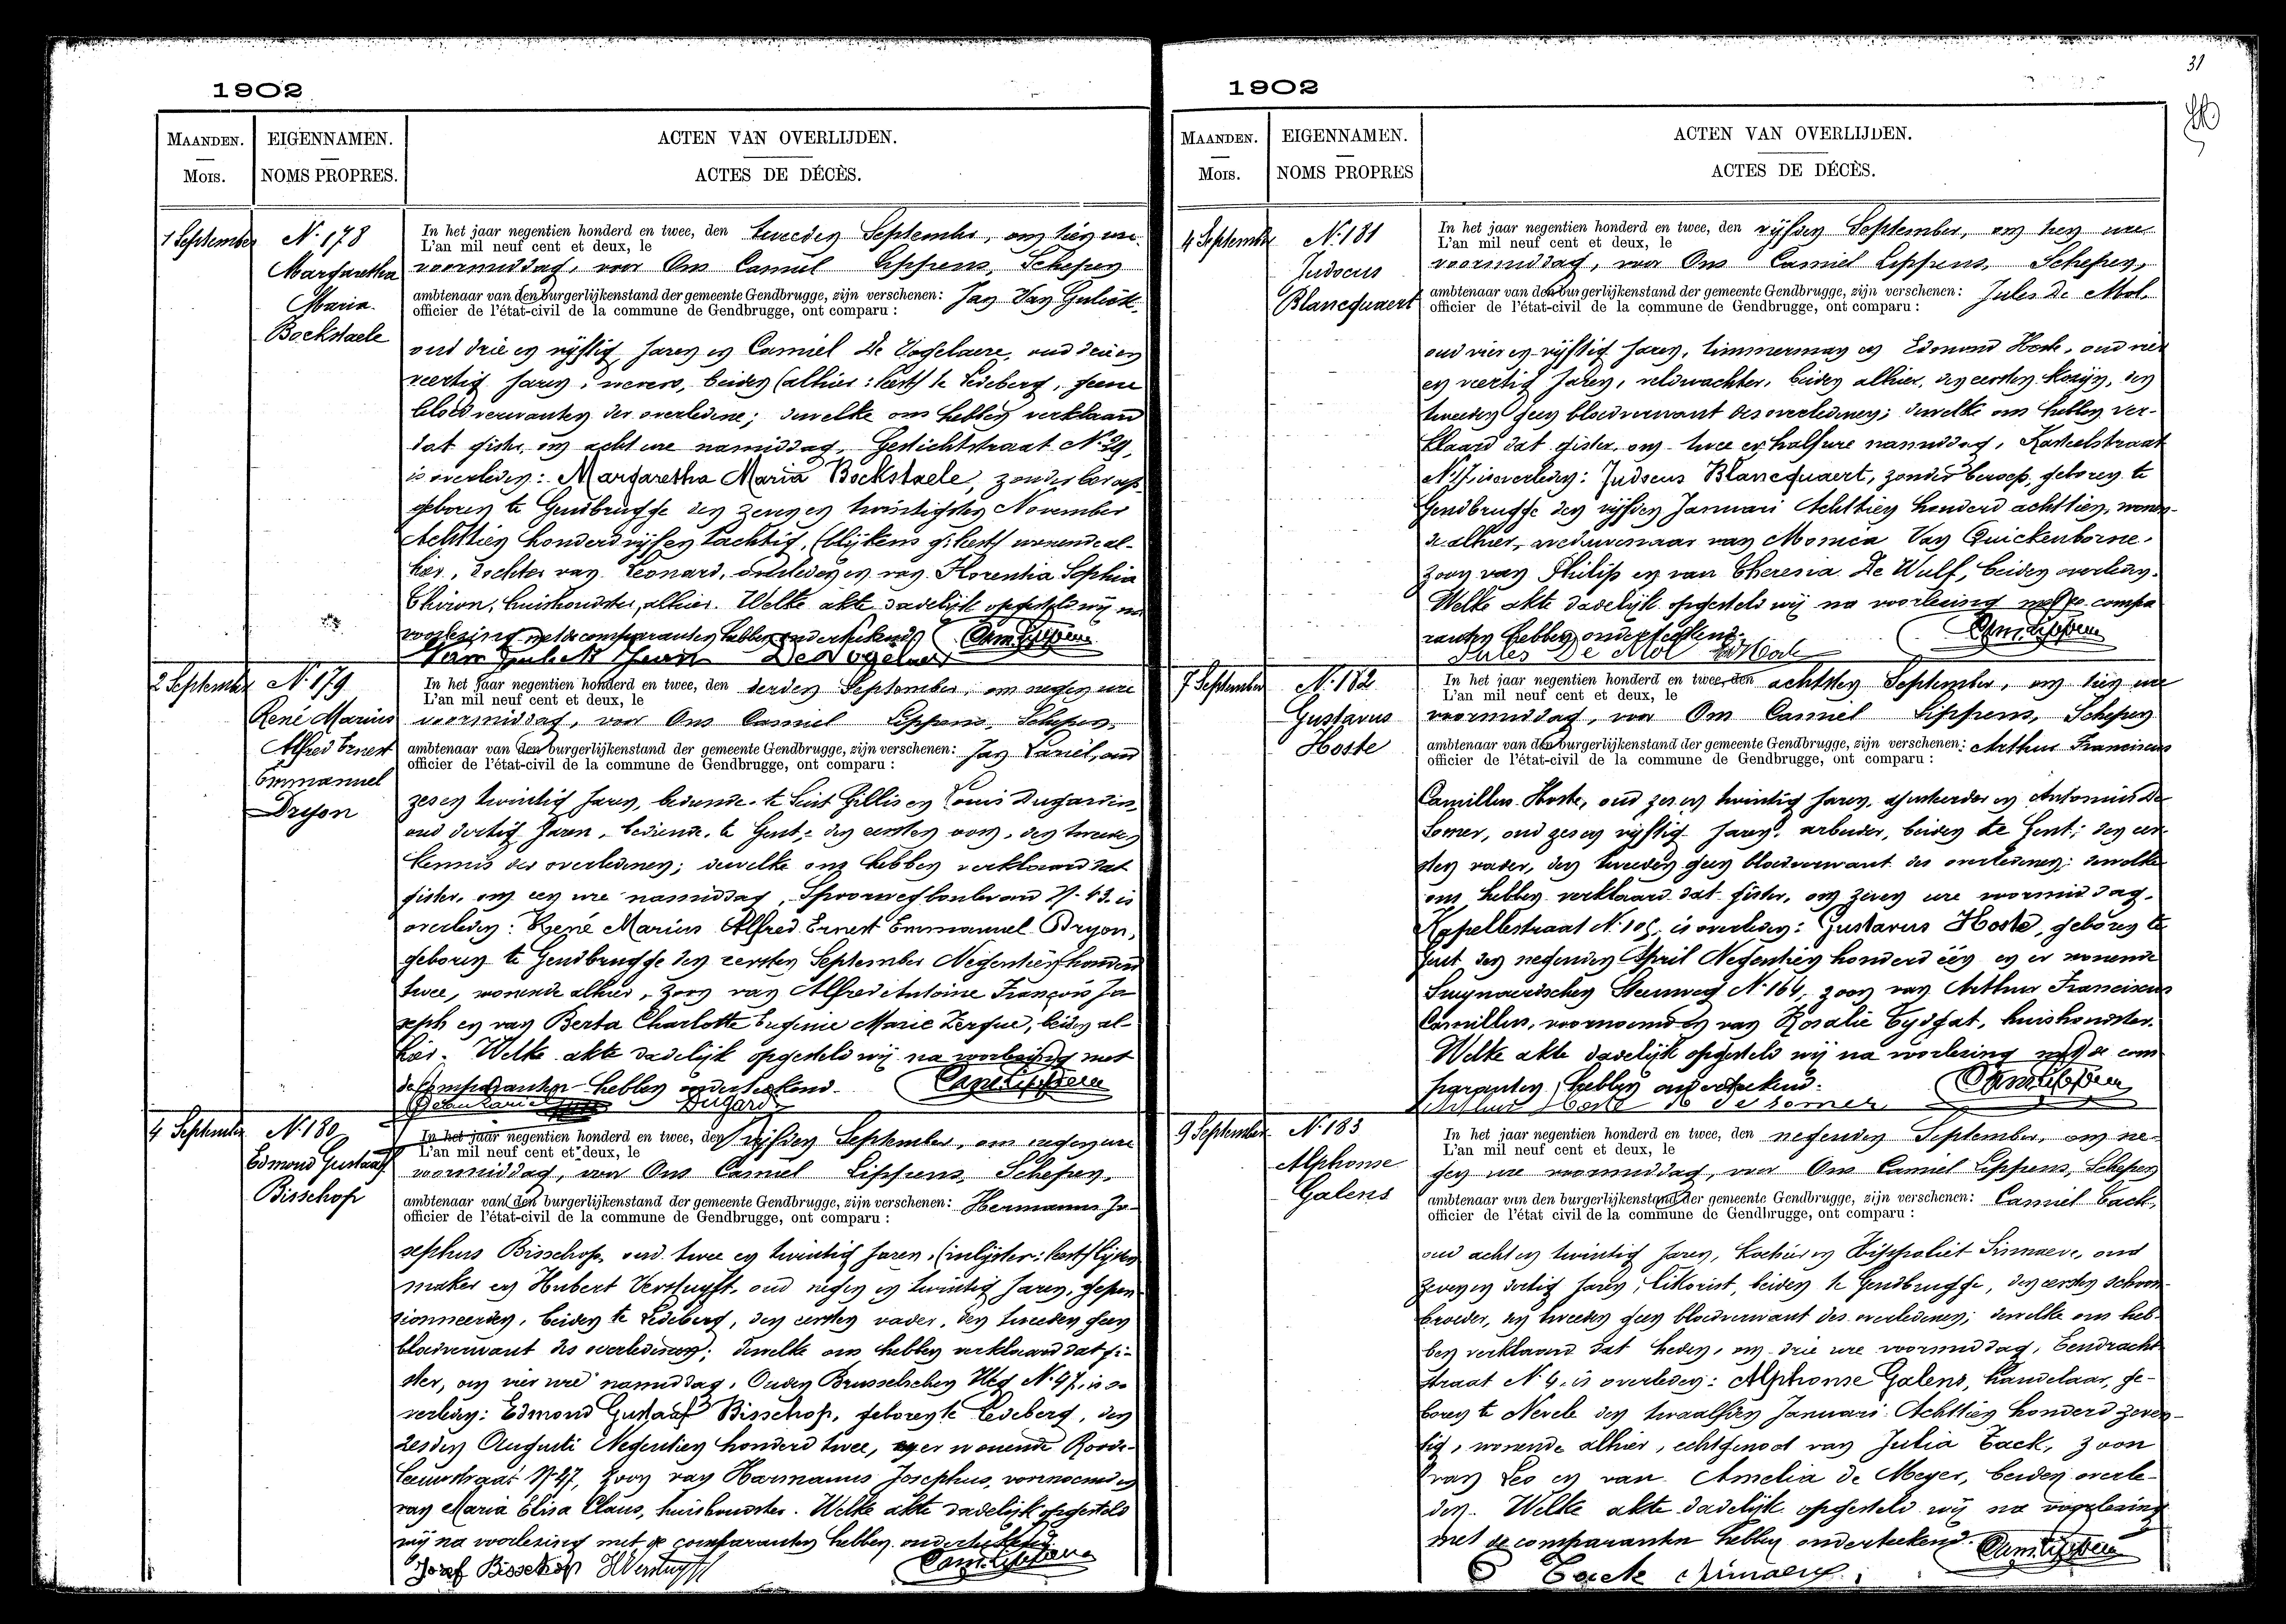 1902
MAANDEN.
Mois.
EIGENNAMEN.
NOMS PROPRES.
ACTEN VAN OVERLIJDEN.
ACTES DE DÉCÈS.
1 September
N. 178
Margaretha
Maria
Bockstaele
In het jaar negentien honderd en twee, den tweeden September, om tien ure
L'an mil neuf cent et deux, le
voormiddag, voor Ons Camiel Lippens, Schepen
ambtenaar van den burgerlijkenstand der gemeente Gendbrugge, zijn verschenen: Jan Van Gulick
officier de l'état-civil de la commune de Gendbrugge, ont comparu :
oud drie en vijftig jaren en Camiel De Vogelaere, oud drie en
veertig jaren, wevers, beiden (alhier: leest) te Ledeberg, geene
bloedverwanten der overledene; dewelke ons hebben verklaard
dat gister, om acht ure namiddag, Gestichtstraat N. 29,
is overleden: Margaretha Maria Bockstaele, zonder beroep,
geboren te Gendbrugge den zeven en twintigsten November
Achttien honderd vijf en tachtig, wonende al-
hier, dochter van Leonard, overleden en van Florentia Sophia
Chiron, huishoudster, alhier. Welke akte dadelijk opgesteld wij na
voorlezing met de comparanten hebben onderteekend.
Van Gulick Jean De Vogelaere
2 September
N. 179
René Marius
Alfred Ernest
Emmanuel
Dryon
In het jaar negentien honderd en twee, den derden September, om negen ure
L'an mil neuf cent et deux, le
voormiddag, voor Ons Camiel Lippens, Schepen,
ambtenaar van den burgerlijkenstand der gemeente Gendbrugge, zijn verschenen: Jan Lariel, oud
officier de l'état-civil de la commune de Gendbrugge, ont comparu :
zes en twintig jaren, bediende te Sint Gillis en Louis Dugardin,
oud dertig jaren, bediende, te Gent; den eersten oom, den tweeden
kennis des overledenen; dewelke ons hebben verklaard dat
gister, om een ure namiddag, Spoorwegboulevard N. 43. is
overleden: René Marius Alfred Ernest Emmanuel Dryon,
geboren te Gendbrugge den eersten September Negentien honderd
twee, wonende alhier, zoon van Alfred Antoine François Jo-
seph en van Berta Charlotte Eugenie Marie Zergue, beiden al-
hier. Welke akte dadelijk opgesteld wij na voorlezing met
de comparanten hebben onderteekend.
Dugardin
4 September
N. 180
Edmond Gustaaf
Bisschop
In het jaar negentien honderd en twee, den vijfden September, om negen ure
L'an mil neuf cent et deux, le
voormiddag, voor Ons Camiel Lippens, Schepen,
ambtenaar van den burgerlijkenstand der gemeente Gendbrugge, zijn verschenen: Hermanus Jo-
officier de l'état-civil de la commune de Gendbrugge, ont comparu :
sephus Bisschop, oud twee en twintig jaren, (inlijster: leest) lijsten
maker en Hubert Verstuyft, oud negen en twintig jaren, gepen-
sionneerden, beiden te Ledeberg, den eersten vader, den tweeden geen
bloedverwant des overledenen; dewelke ons hebben verklaard dat gi-
ster, om vier ure namiddag, Ouden Brusselschen Weg N. 47, is o-
verleden: Edmond Gustaaf Bisschop, geboren te Ledeberg, den
zesden Augusti Negentien honderd twee, en er wonende Roode-
leeuwstraat N. 47, zoon van Harmanus Josephus, voornoemd en
van Maria Elisa Claus, huishoudster. Welke akte dadelijk opgesteld
wij na voorlezing met de comparanten hebben onderteekend.
Jozef Bisschop HVerstuyft
1902
31
MAANDEN.
Mois.
EIGENNAMEN.
NOMS PROPRES
ACTEN VAN OVERLIJDEN.
ACTES DE DÉCÈS.
4 September
N. 181
Judocus
Blancquaert
In het jaar negentien honderd en twee, den vijfden September, om tien ure
L'an mil neuf cent et deux, le
voormiddag, voor Ons Camiel Lippens, Schepen,
ambtenaar van den burgerlijkenstand der gemeente Gendbrugge, zijn verschenen: Jules De Mol,
officier de l'état-civil de la commune de Gendbrugge, ont comparu :
oud vier en vijftig jaren, timmerman en Edmond Hoste, oud vier
en veertig jaren, veldwachter, beiden alhier, den eersten kozijn, den
tweeden geen bloedverwant des overledenen; dewelke ons hebben ver-
klaard dat gister, om twee en half ure namiddag, Kasteelstraat
is overleden: Judocus Blancquaert, zonder beroep, geboren te
Gendbrugge den vijfden Januari Achttien honderd achttien, wonen-
de alhier, weduwenaar van Monica Van Quickenborne,
zoon van Philip en van Theresia De Wulf, beiden overleden.
Welke akte dadelijk opgesteld wij na voorlezing met de compa
ranten hebben onderteekend.
Jules De Mol EdHoste
7 September
N. 182
Gustavus
Hoste
In het jaar negentien honderd en twee, den achtsten September, om tien ure
L'an mil neuf cent et deux, le
voormiddag, voor Ons Camiel Lippens, Schepen
ambtenaar van den burgerlijkenstand der gemeente Gendbrugge, zijn verschenen: Arthur Franciscus
officier de l'état-civil de la commune de Gendbrugge, ont comparu :
Camillus Hoste, oud zes en twintig jaren, en Antonius De
Somer, oud zes en vijftig jaren, arbeider, beiden te Gent; den eer-
sten vader, den tweeden geen bloedverwant des overledenen; dewelke
ons hebben verklaard dat gister, om zeven ure voormiddag,
Kapellestraat is overleden: Gustavus Hoste, geboren te
Gent den negenden April Negentien honderd één en er wonende
Swynaerdschen Steenweg N. 164, zoon van Arthur Franciscus
Camillus, voornoemd en van Rosalie Eydgat, huishoudster.
Welke akte dadelijk opgesteld wij na voorlezing met de com
paranten hebben onderteekend.
Arthur Hoste De Somer
9 September
N. 183
Alphonse
Galens
In het jaar negentien honderd en twee, den negenden September, om ne-
L'an mil neuf cent et deux, le
gen ure voormiddag, voor Ons Camiel Lippens, Schepen
ambtenaar van den burgerlijkenstand der gemeente Gendbrugge, zijn verschenen: Camiel Tack,
officier de l'état civil de la commune de Gendbrugge, ont comparu :
oud acht en twintig jaren, koetsier en Hippoliet Sinnaeve, oud
zeven en dertig jaren, likorist, beiden te Gendbrugge, den eersten schoon-
broeder, den tweeden geen bloedverwant des overledenen; dewelke ons heb-
ben verklaard dat heden, om drie ure voormiddag, Eendracht-
straat N. 4, is overleden: Alphonse Galens, handelaar, ge-
boren te Nevele den twaalfden Januari Achttien honderd zeven-
tig, wonende alhier, echtgenoot van Julia Tack, zoon
van Leo en van Amelia de Meyer, beiden overle-
den. Welke akte dadelijk opgesteld wij na voorlezing
met de comparanten hebben onderteekend.
C Tack